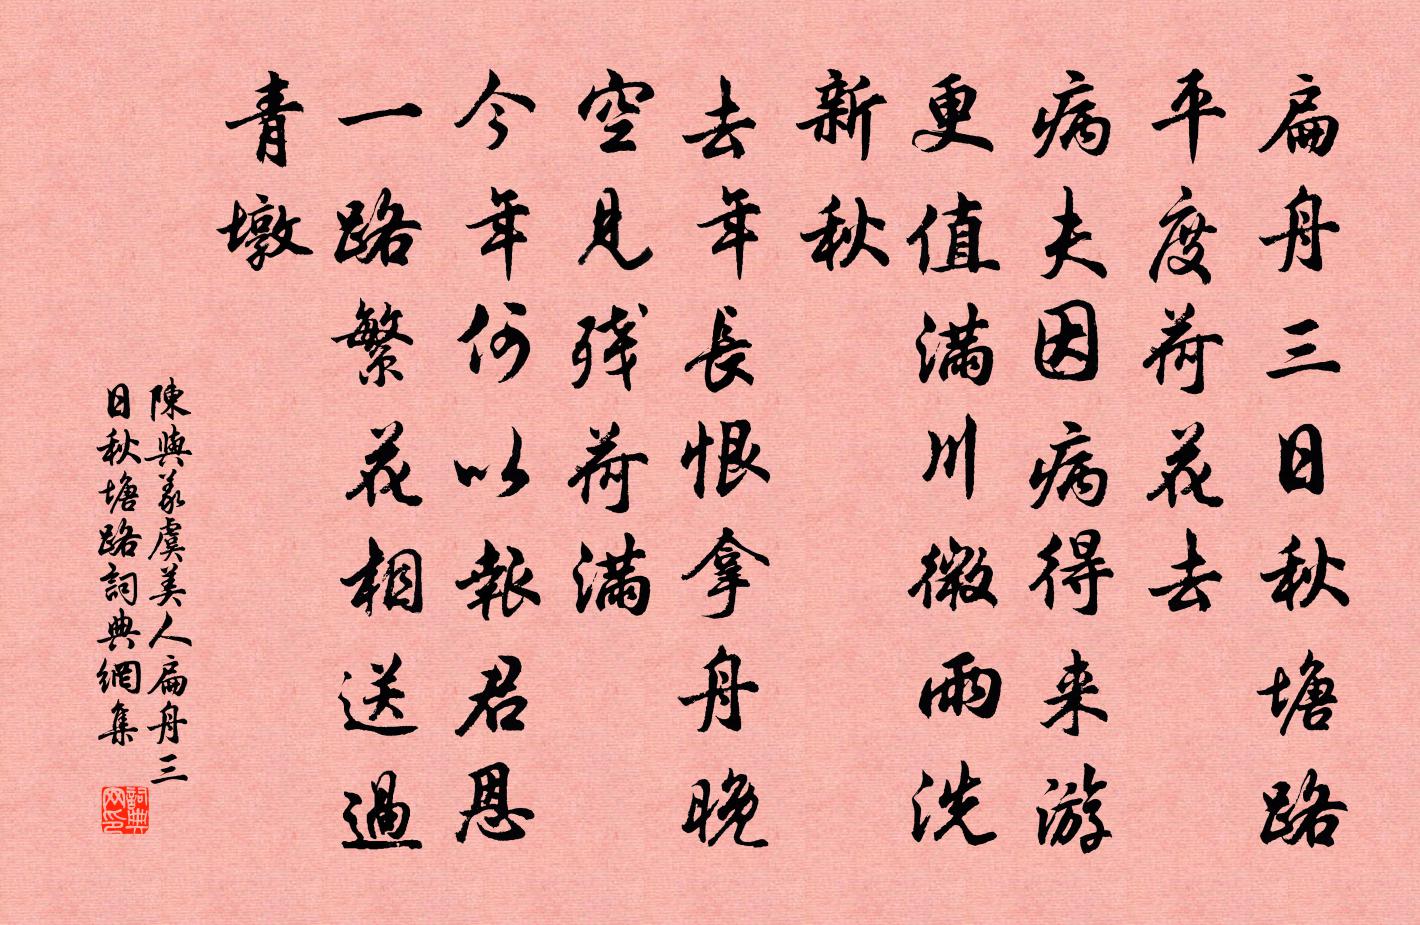 扁舟三日秋塘路
平度荷花去
病夫因病得来游
更值滿川微雨洗
新秋
去年長恨拿舟晚
空見残荷滿
今年何以報君恩
一路繁花相送過
青墩
陳與義虞美人扁舟三
日秋塘路詞典網集
詞典
网印